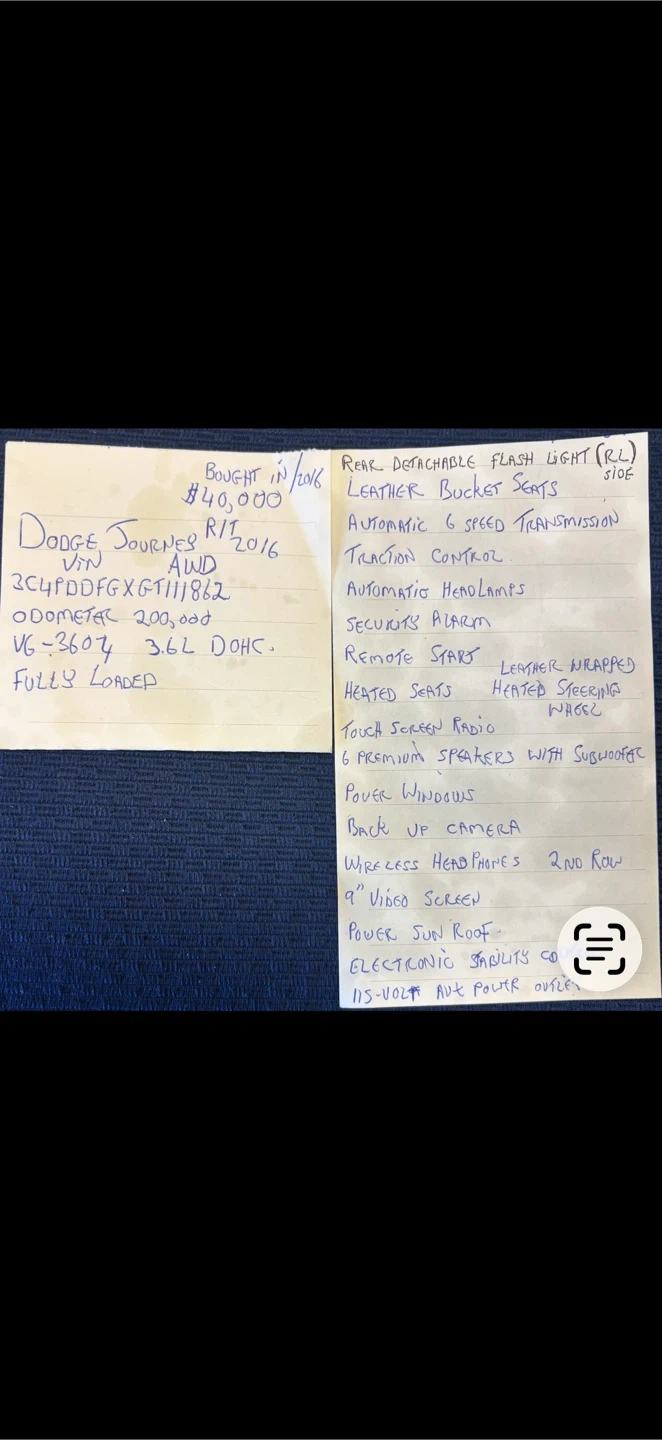 BOUGHT IN/2016
$40,000
DODGE JOURNEY R/T 2016
VIN AWD
3C4PDDFGXGT111862
ODOMETER 200,000
V6-3604 3.6L DOHC.
FULLY LOADED
REAR DETACHABLE FLASH LIGHT (RL)
SIDE
LEATHER BUCKET SEATS
AUTOMATIC 6 SPEED TRANSMISSION
TRACTION CONTROL
AUTOMATIC HEADLAMPS
SECURITY ALARM
REMOTE START
HEATED SEATS
LEATHER WRAPPED
HEATED STEERING
WHEEL
TOUCH SCREEN RADIO
6 PREMIUM SPEAKERS WITH SUBWOOFER
POWER WINDOWS
BACK UP CAMERA
WIRELESS HEADPHONES 2ND ROW
9" VIDEO SCREEN
POWER SUN ROOF
ELECTRONIC STABILITY CO
115-VOLT AUX POWER OUTLET